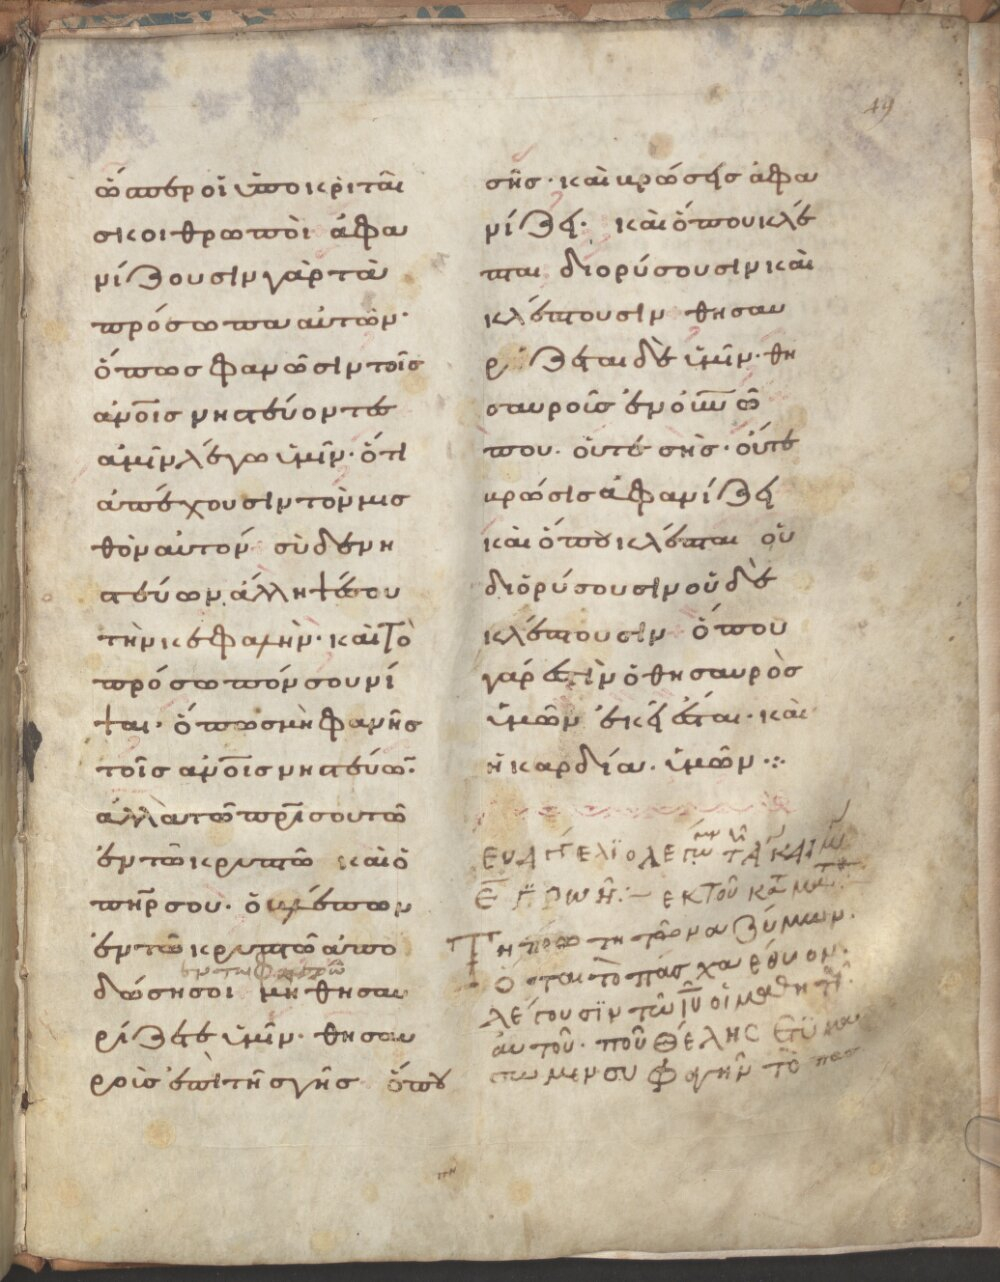 49
ὥσπερ οἱ ὑποκριταὶ
σκοιθρωποὶ ἀφα
νίζουσιν γὰρ τὰ
πρόσωπα αὐτῶν·
ὅπως φανῶσιν τοῖς
ἀνοῖς νηστεύοντες
ἀμὴν λέγω ὑμῖν· ὅτι
ἀπέχουσιν τὸν μισ
θὸν αὐτόν σὺ δὲ νη
στεύων ἄλληψέ σου
τὴν κεφαλὴν· καὶ τὸ
πρόσωπόν σου νί
ψαι· ὅπως μὴ φανῆς
τοῖς ἀνοῖς νηστεύω·
ἀλλὰ τῶ πρι σου τῶ
ἐν τῶ κρυπτῶ καὶ ὁ
πηρ σου· ὁ βλέπων
ἐν τῶ κρυπτῶ ἀπο
ἐν τῶ φανερῶ
δώσῃ σοι μὴ θησαυ
ρίζετε ὑμῖν· θησαυ
ροὶς ἐπὶ τῆς γῆς ὅπου
σῆς· καὶ βρώσεις ἀφα
νίζει· καὶ ὅπου κλέ
πται διορύσουσιν καὶ
κλέπτουσιν θησαυ
ρίζεται δὲ ὑμῖν· θη
σαυροῖς ἐν οὐνω ὅ
που· οὔτε σὴς· οὔτε
βρώσις ἀφανίζει
καὶ ὅπου κλέπται οὐ
διορύσουσιν οὐδὲ
κλέπτουσιν ὅπου
γάρ ἐστὶν ὁ θησαυρὸς
ὑμῶν ἐκεῖ ἔσται· καὶ
ἡ καρδία· ὑμῶν·:·
ΕΥΑΓΓΕΛΙ
ἐκ τοῦ κατ ματ
Τῆ πρώτη τῶν ἀζύμων·
λέγουσιν τῶ ιυ οἱ μαθητ
αὐτοῦ· ποῦ θέλης ἑτυμα
σωμεν συ φαγῆν τὸ πασ